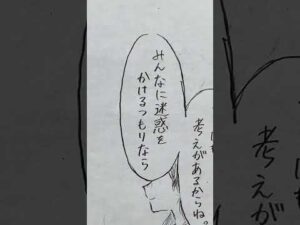 みんなに迷惑を
かけるつもりなら
考えがあるからね。
考えが